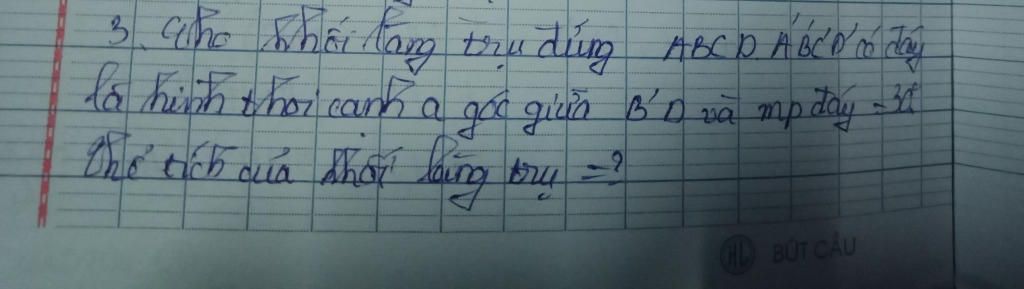 3. Cho khối lăng trụ đứng ABCD.A'B'C'D' có đáy
là hình thoi cạnh a góc giữa B'D và mp đáy = 30°
thể tích của khối lăng trụ = ?
HL BÚT CẬU